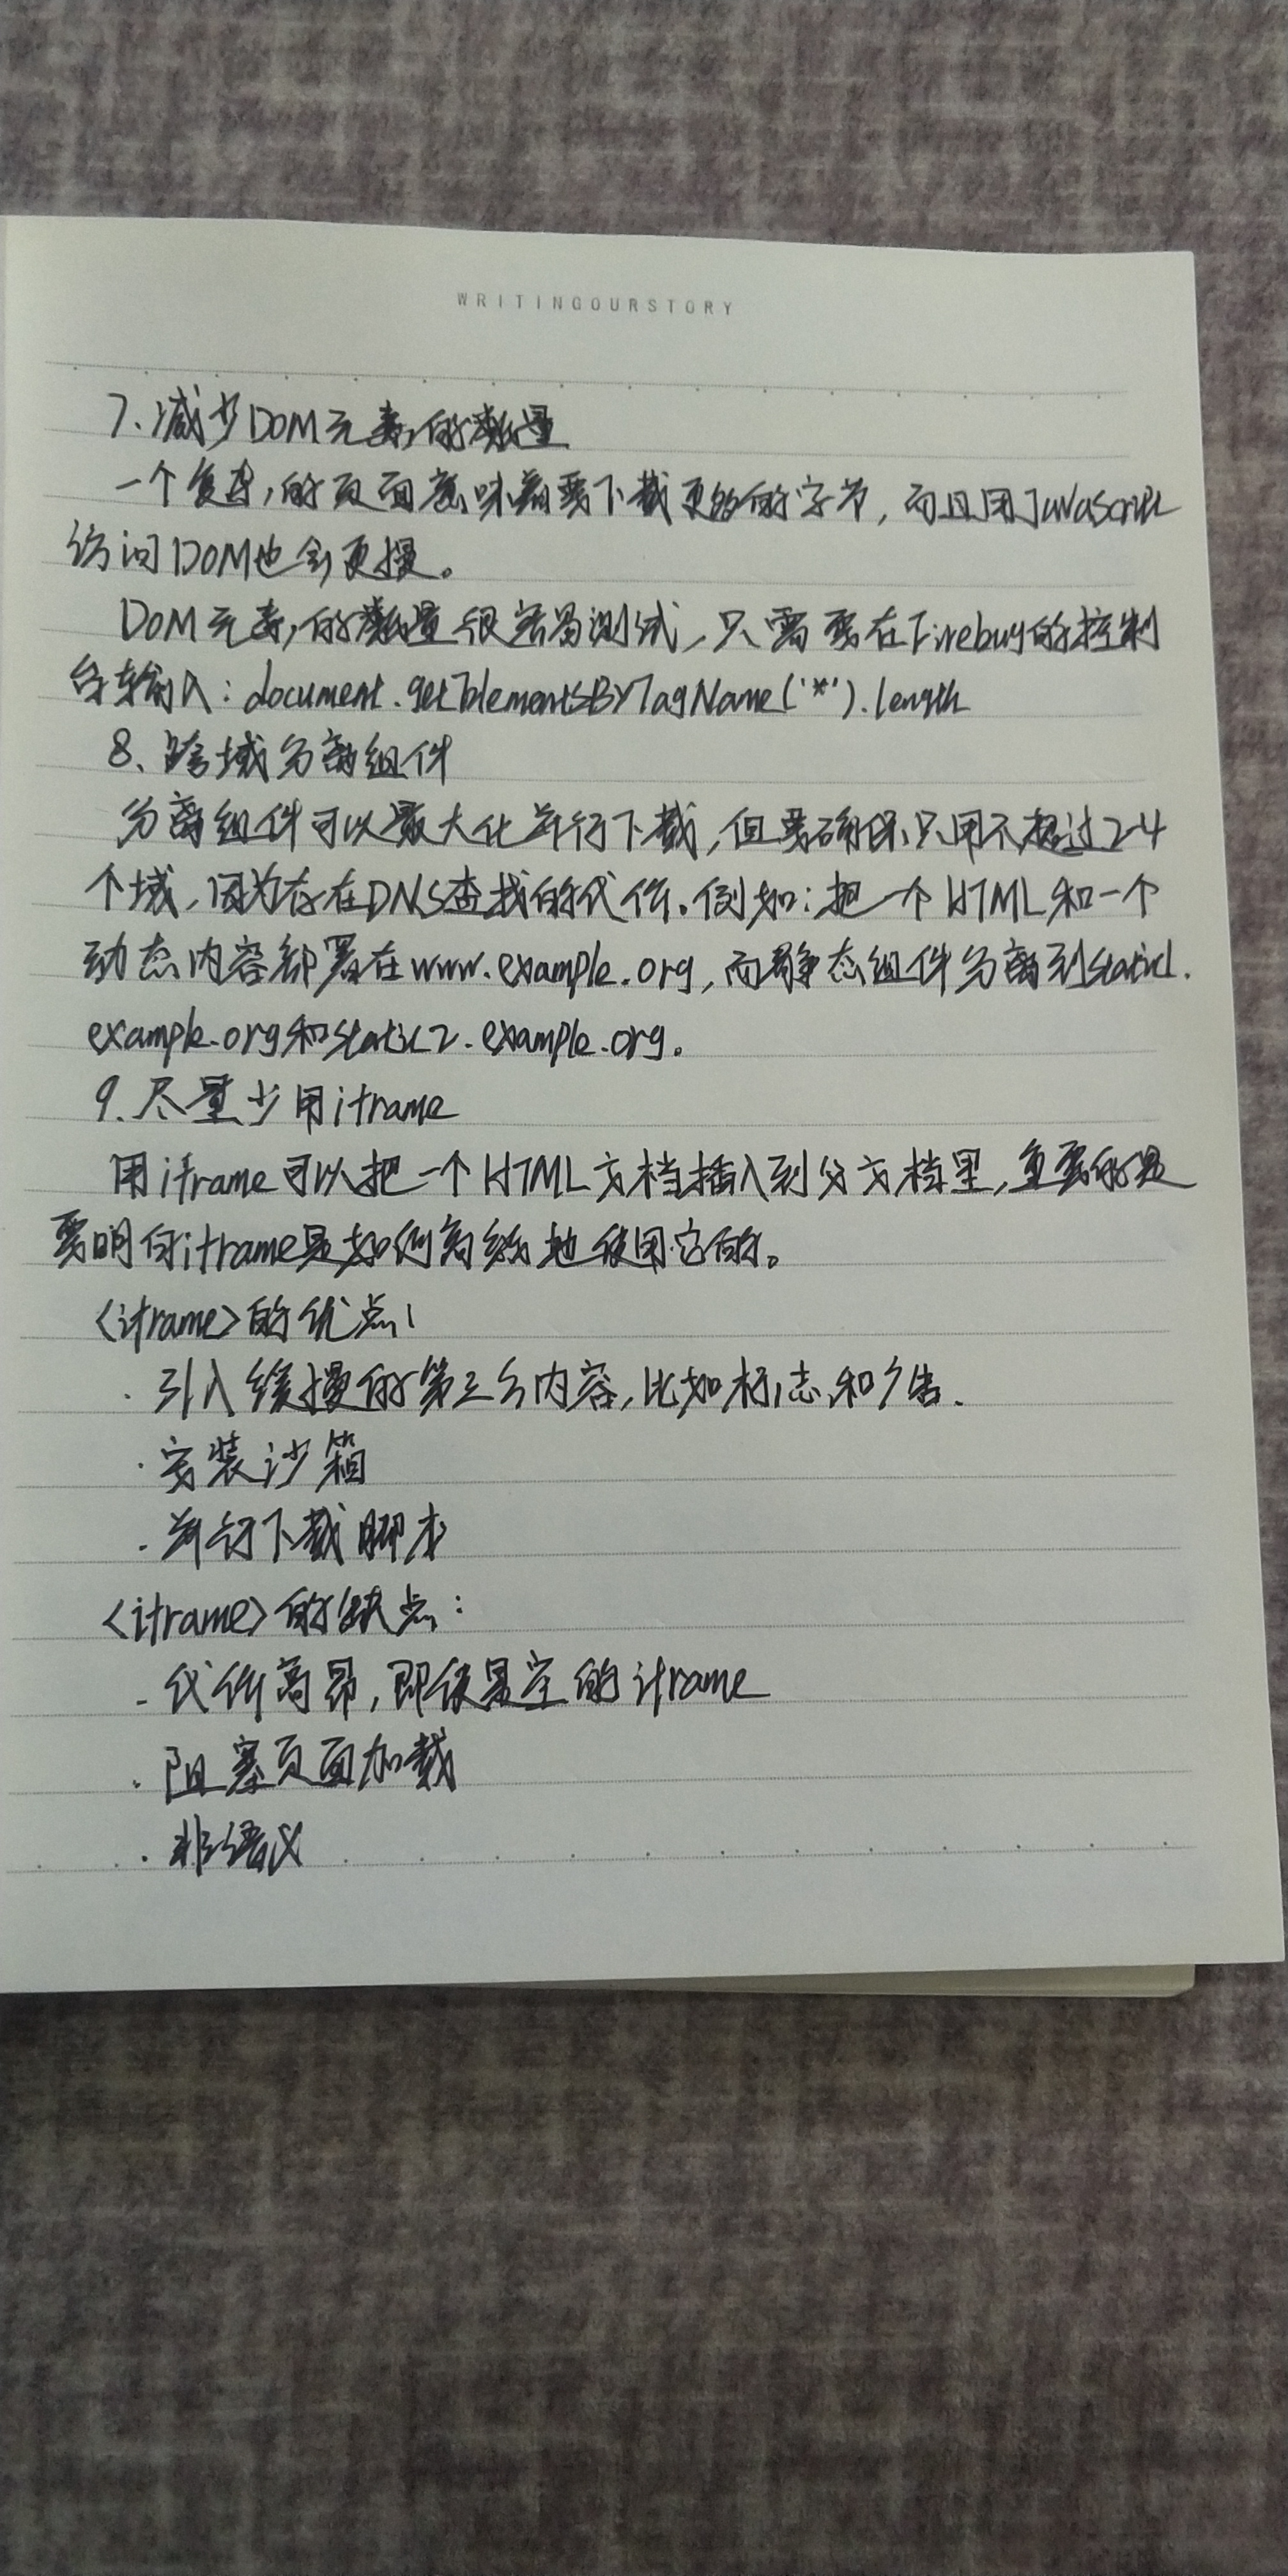 WRITINGOURSTORY
7、减少DOM元素的数量
一个复杂的页面意味着要下载更多的字节,而且用JavaScript
访问DOM也会更慢。
DOM元素的数量很容易测试,只需要在Firebug的控制
台输入:document.getElementsByTagName('*').length
8、跨域分离组件
分离组件可以最大化并行下载,但要确保只用不超过2-4
个域,因为存在DNS查找的代价。例如:把一个HTML和一个
动态内容部署在www.example.org,而静态组件分离到static1.
example.org和static2.example.org。
9.尽量少用iframe
用iframe可以把一个HTML文档插入到父文档里,重要的是
要明白iframe是如何高效地使用它的。
<iframe>的优点:
·引入缓慢的第三方内容,比如标志和广告.
·安装沙箱
·并行下载脚本
<iframe>的缺点:
-代价高昂,即使是空的iframe
·阻塞页面加载
·非语义